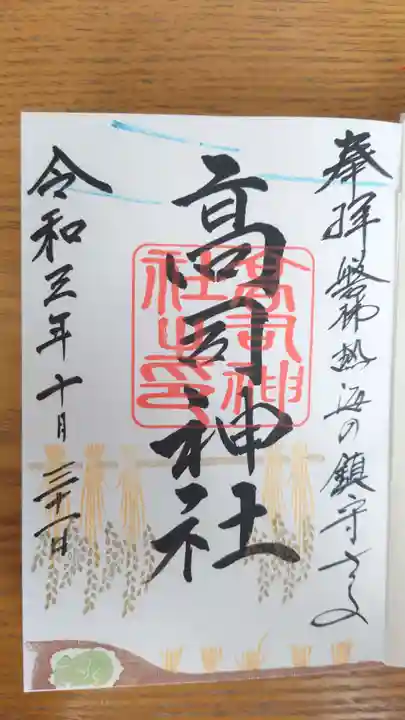 奉拝 磐梯熱海の鎮守さま
高司神社
高司神社之印
令和三年十月三十一日